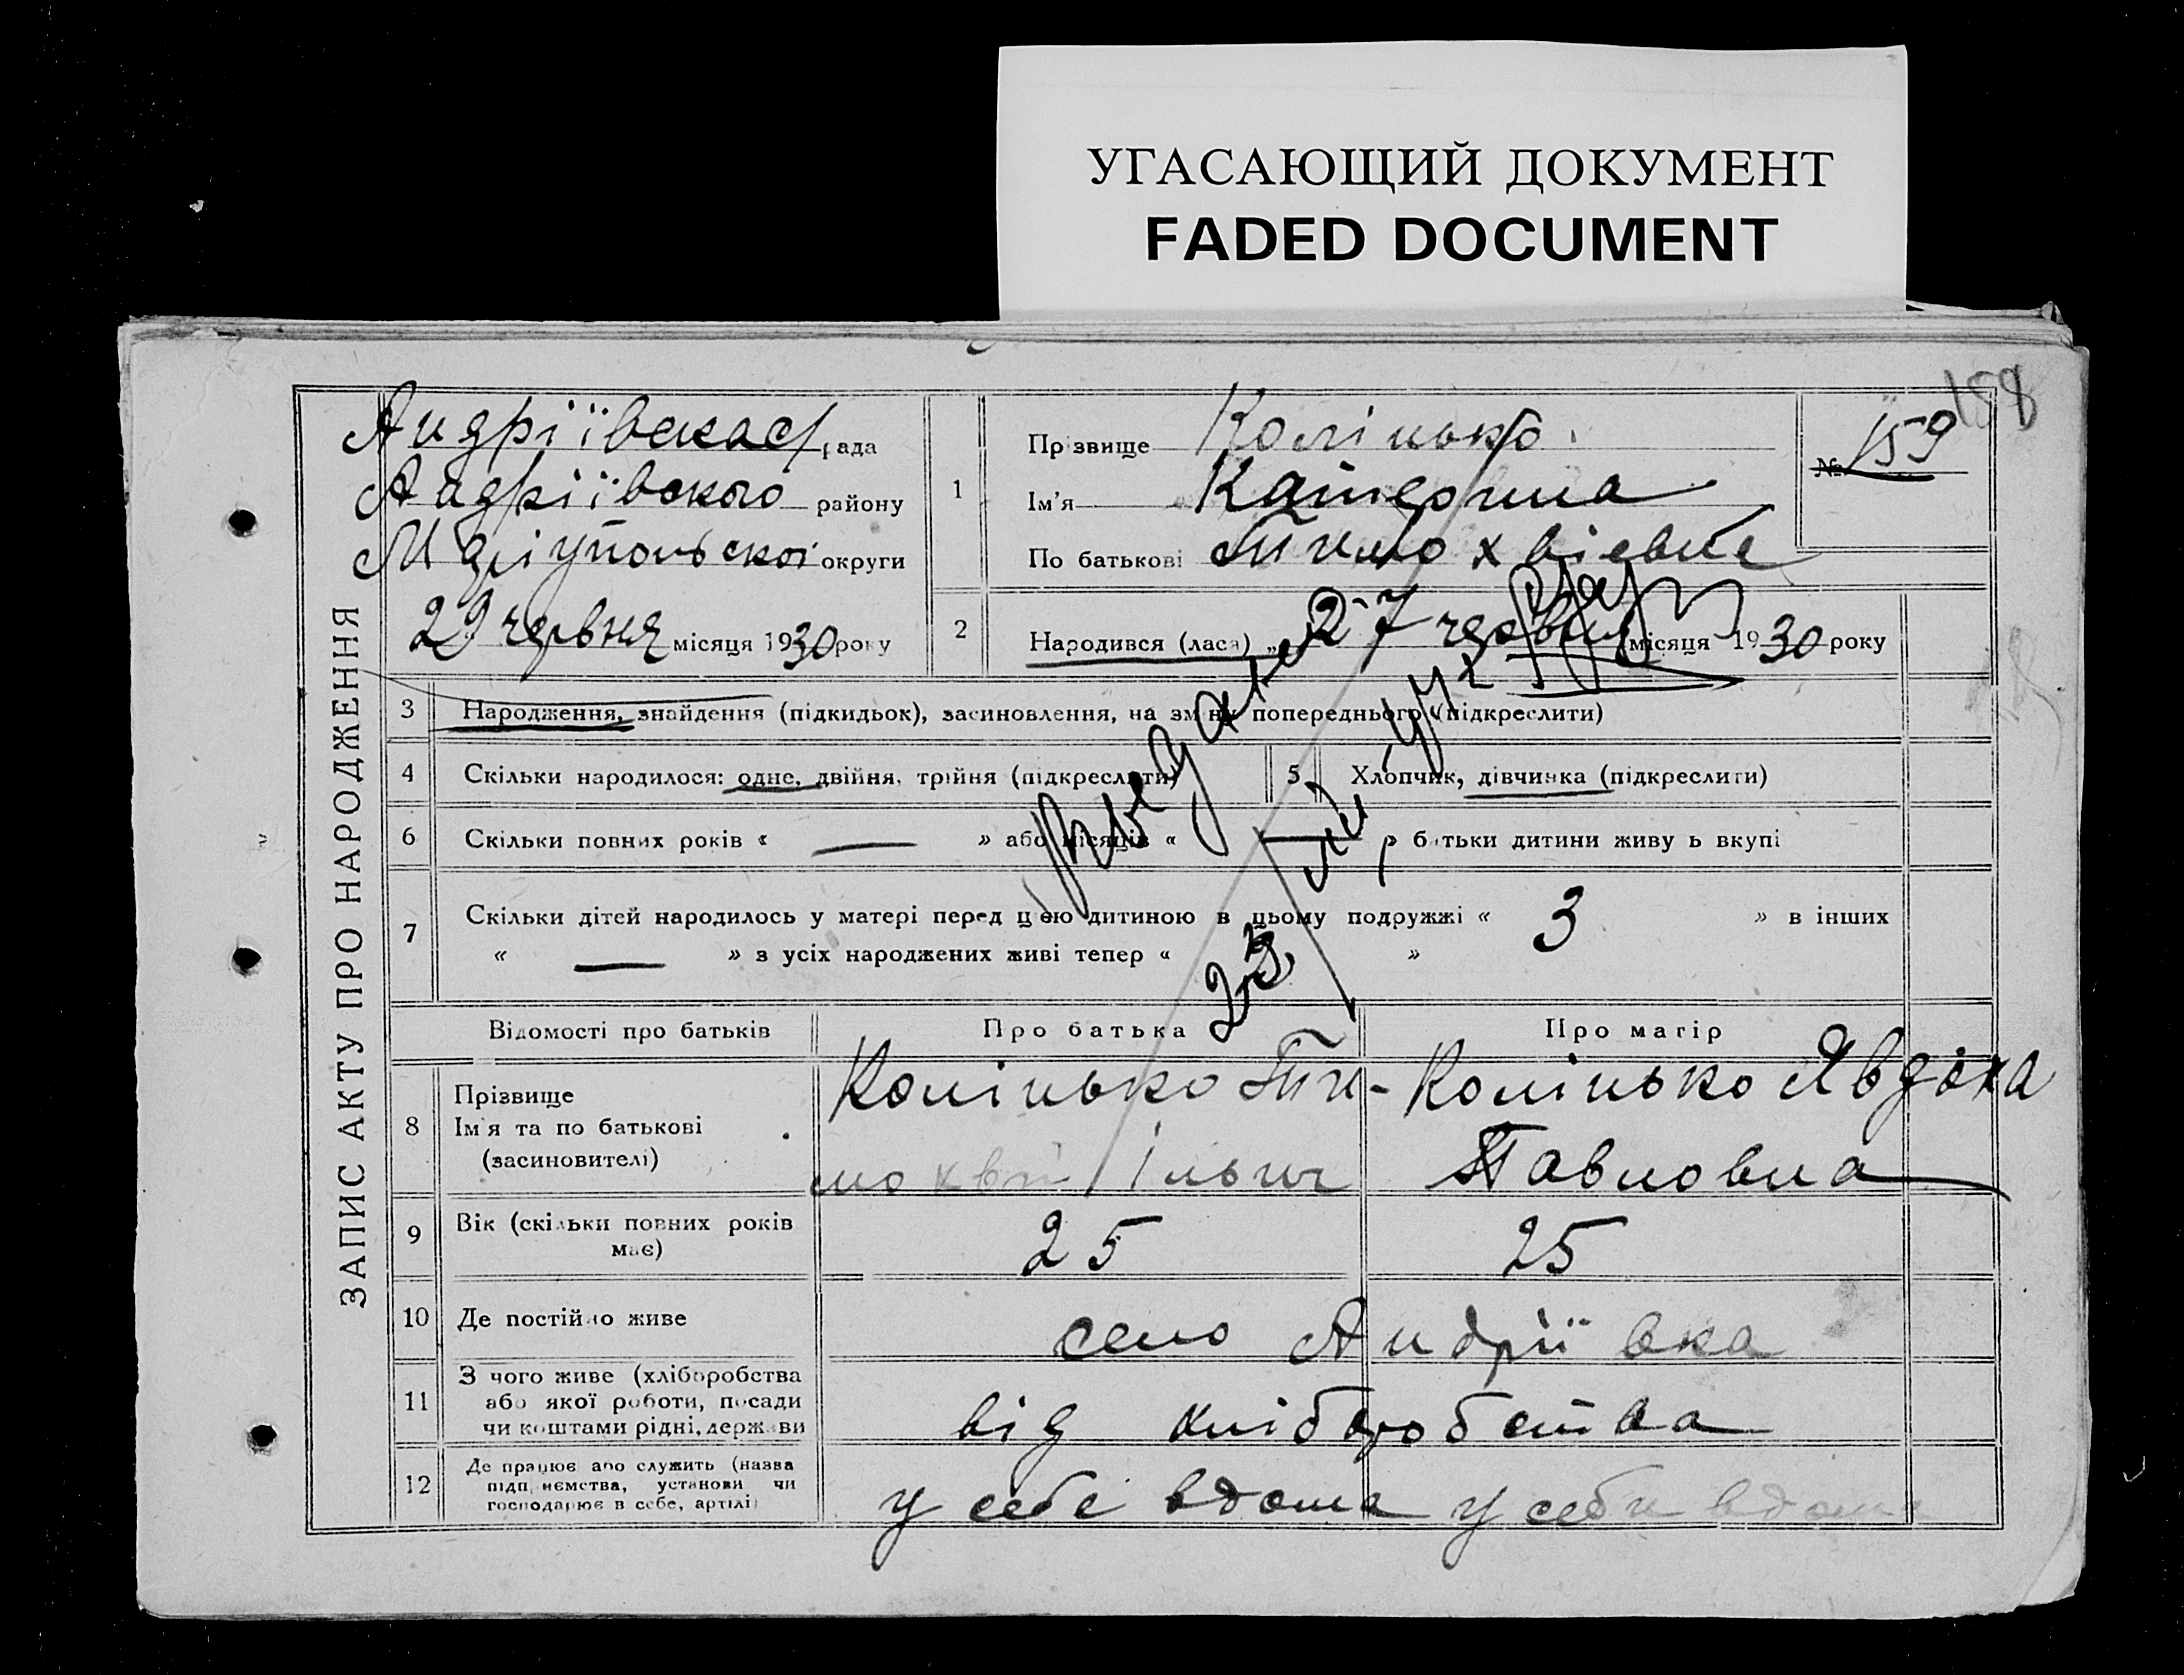 УГАСАЮЩИЙ ДОКУМЕНТ
FADED DOCUMENT
158
ЗАПИС АКТУ ПРО НАРОДЖЕННЯ
Андріївська рада
Андріївського району
Маріупольскоі округи
29 червня місяця 1930 року
1
Прізвище Колінько
Ім'я Катерина
По батькові Тимохвієвне
№ 159
2
Народився (лася) „ 27 червня місяця 1930 року
3
Народження, знайдення (підкидьок), засиновлення, на зміну попереднього (підкреслити)
4
Скільки народилося: одне, двійня, трійня (підкреслити)
5
Хлопчик, дівчинка (підкреслити)
6
Скільки повних років « — » або місяців « » батьки дитини живуть вкупі
7
Скільки дітей народилось у матері перед цією дитиною в цьому подружжі « 3 » в інших
« — » з усіх народжених живі тепер « »
Відомості про батьків
Про батька
Про матір
8
Прізвище
Ім'я та по батькові
(засиновителі)
Колінько Ти-
мохвій Ільич
Колінько Явдоха
Павловна
9
Вік (скільки повних років
має)
25
25
10
Де постійно живе
село Андріївка
11
З чого живе (хліборобства
або якої роботи, посади
чи коштами рідні, держави
від хліборобства
12
Де працює або служить (назва
підприємства, установи чи
господарює в себе, артілі)
у себе вдома
у себи вдома